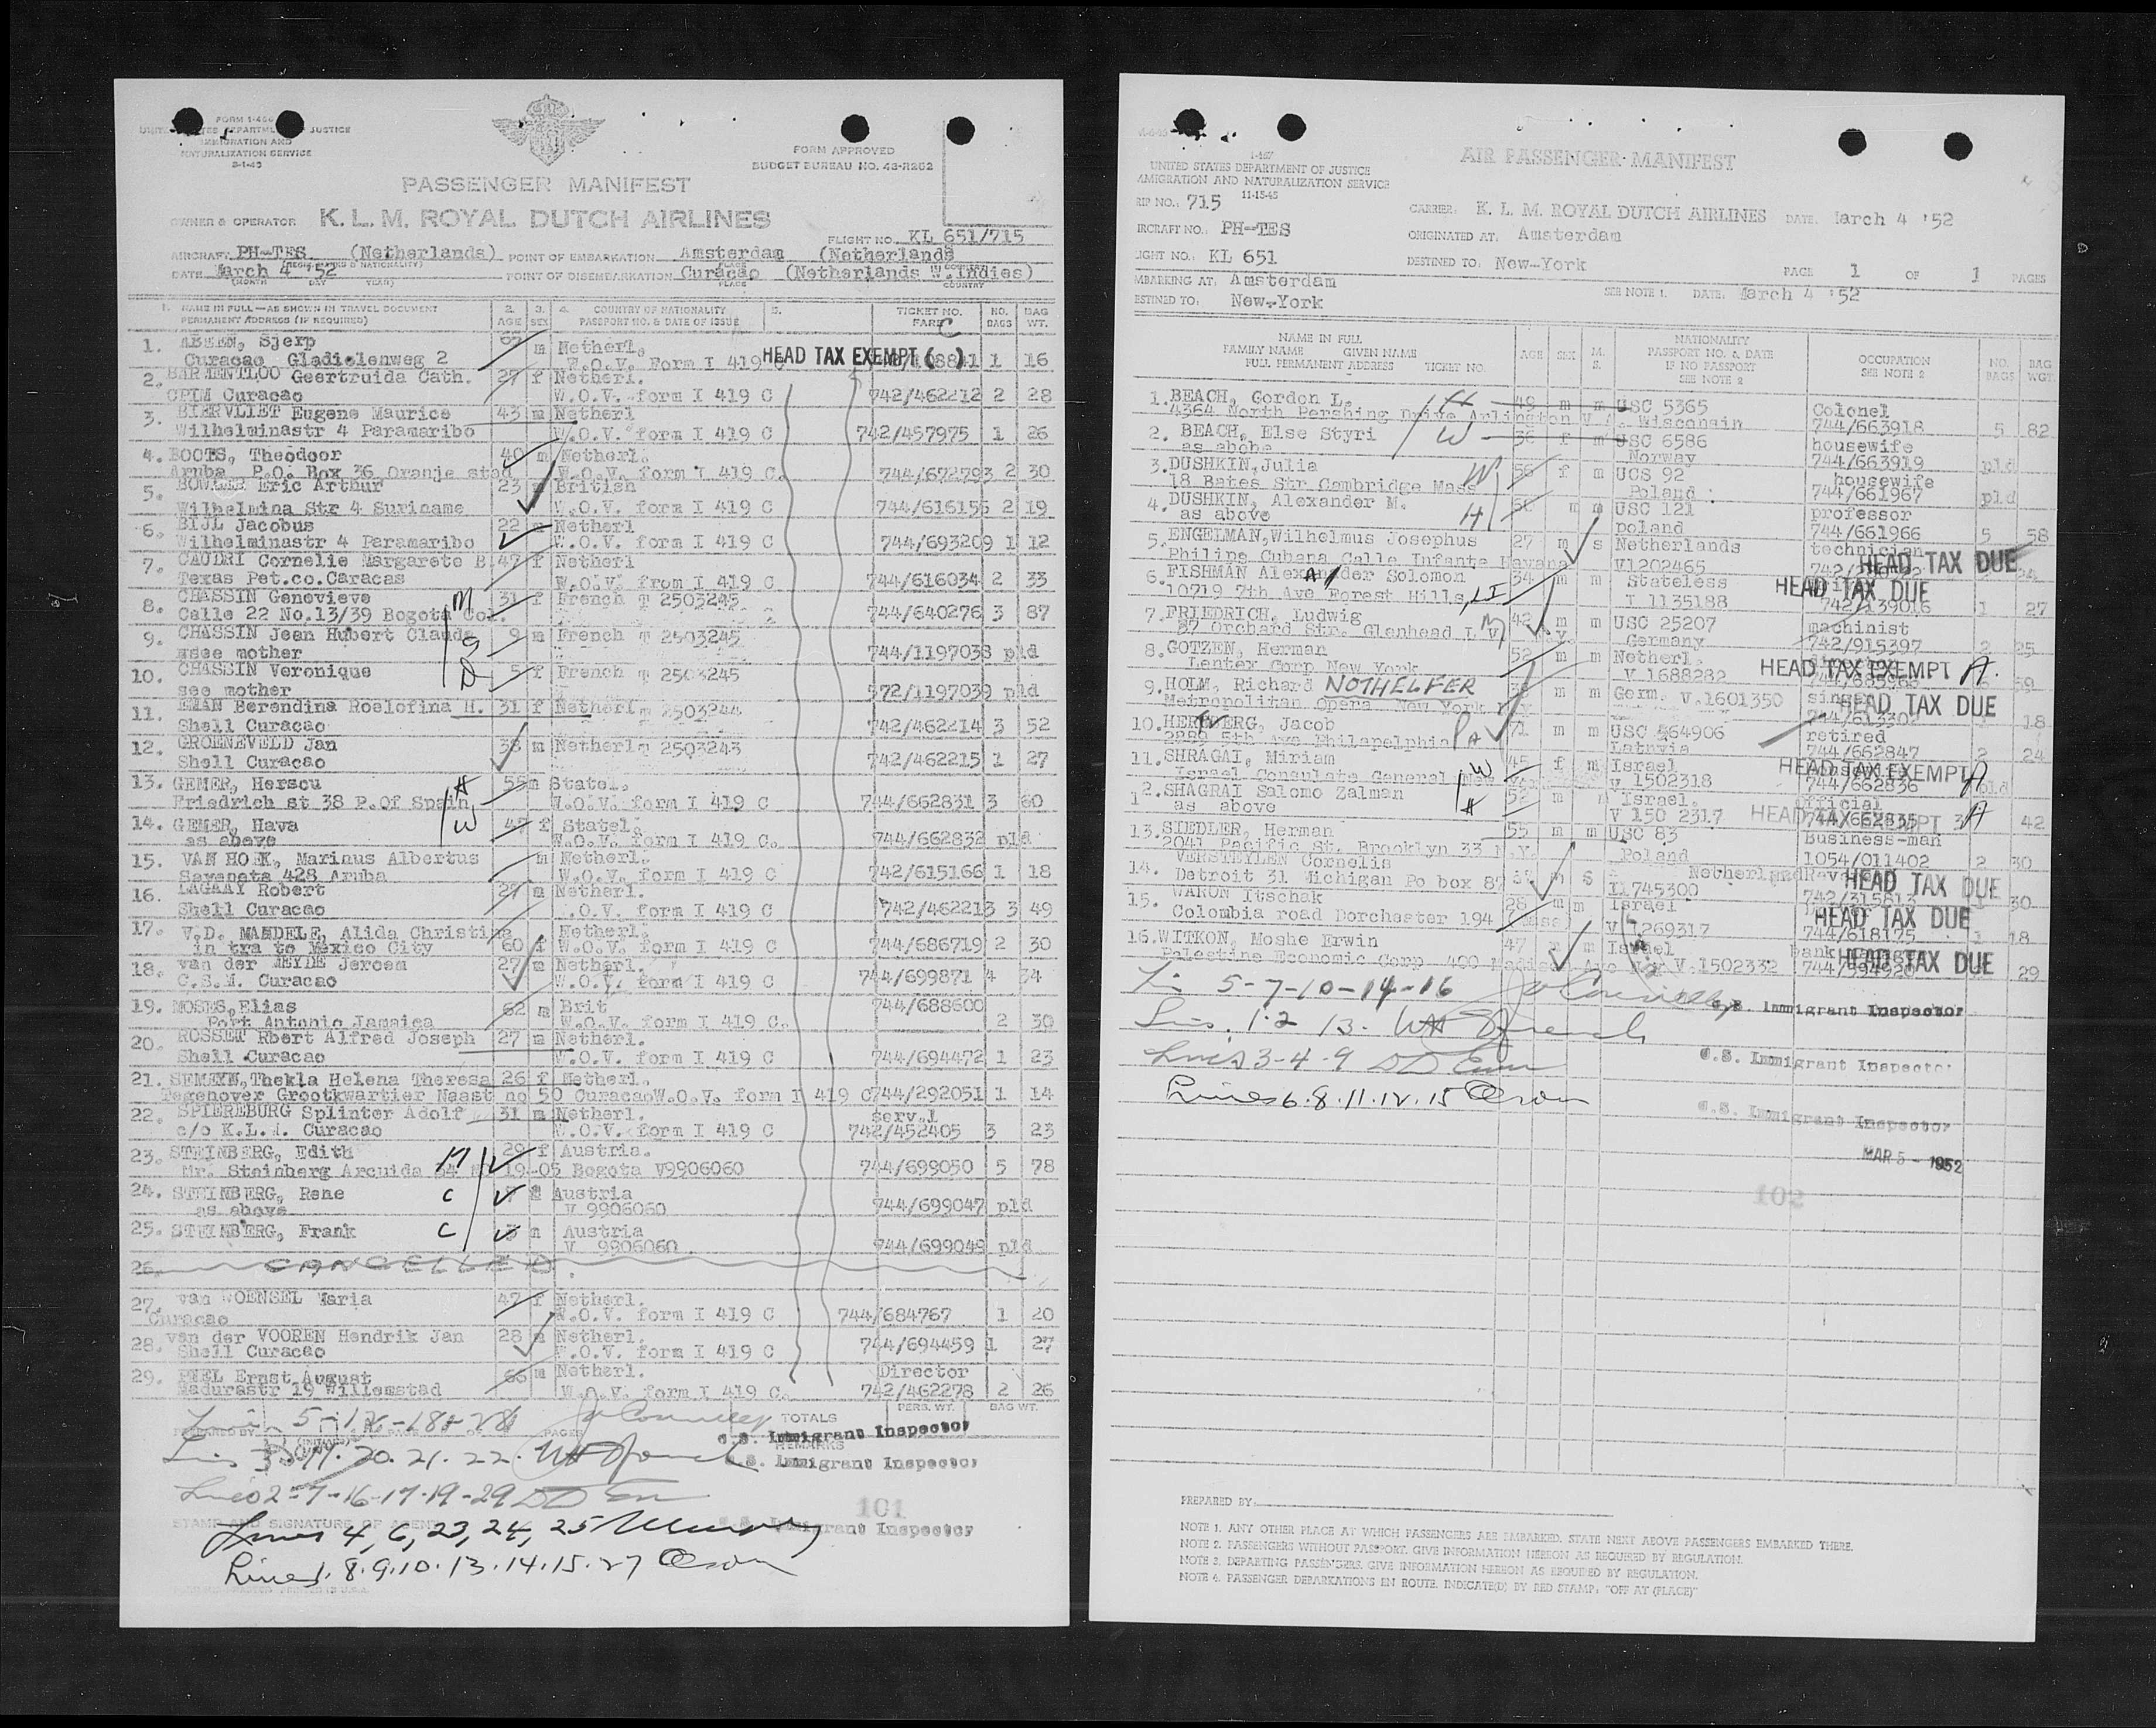 FORM I-466
UNITED STATES DEPARTMENT OF JUSTICE
IMMIGRATION AND
NATURALIZATION SERVICE
FORM APPROVED
BUDGET BUREAU NO. 43-R252
PASSENGER MANIFEST
OWNER & OPERATOR K. L. M. ROYAL DUTCH AIRLINES
FLIGHT NO. KL 651/715
AIRCRAFT PH-TES (Netherlands) POINT OF EMBARKATION Amsterdam (Netherlands
DATE March 4 '52 POINT OF DISEMBARKATION Curaçao (Netherlands W. Indies)
1. NAME IN FULL—AS SHOWN IN TRAVEL DOCUMENT 2. 3. 4. COUNTRY OF NATIONALITY 5. TICKET NO. NO. BAG
PERMANENT ADDRESS (IF REQUIRED) AGE SEX PASSPORT NO. & DATE OF ISSUE FARE BAGS WT.
1. ABEEN, Sjerp 67 m Netherl.
Curacao Gladiolenweg 2 W.O.V. Form I 419 C HEAD TAX EXEMPT ( C ) 1 16
2. BARMENTLOO Geertruida Cath. 27 f Netherl.
CPIM Curacao W.O.V. form I 419 C 742/462212 2 28
3. BIERVLIET Eugene Maurice 43 m Netherl
Wilhelminastr 4 Paramaribo W.O.V. form I 419 C 742/457975 1 26
4. BOOTS, Theodoor 40 m Netherl.
Aruba P.O. Box 36 Oranje stad W.O.V. form I 419 C. 744/672793 2 30
5. Eric Arthur 23 British
Wilhelmina Str 4 Suriname W.O.V. form I 419 C 744/616155 2 19
6. BIJL Jacobus 22 m Netherl
Wilhelminastr 4 Paramaribo W.O.V. form I 419 C 744/693209 1 12
7. CAUDRI Cornelie Margarete B. 47 f Netherl
Texas Pet.co.Caracas W.O.V. from I 419 C 744/616034 2 33
8. CHASSIN Genevieve M 31 f French T 2503245
Calle 22 No.13/39 Bogota Col. 744/640276 3 87
9. CHASSIN Jean Hubert Claude S 9 m French T 2503245
see mother 744/1197038 pld
10. CHASSIN Veronique D 5 f French T 2503245
see mother 572/1197039 pld
11. EMAN Berendina Roelofina H. 31 f Netherl. T 2503244
Shell Curacao 742/462214 3 52
12. GROENEVELD Jan 38 m Netherl T 2503243
Shell Curacao 742/462215 1 27
13. GEMER, Herscu H 55 m Statel.
Friedrich st 38 P.Of Spain W.O.V. form I 419 C 744/662831 3 60
14. GEMER, Hava W 47 f Statel.
as above W.O.V. form I 419 C. 744/662832 pld
15. VAN HOEK, Marinus Albertus m Netherl.
Savaneta 428 Aruba W.O.V. form I 419 C 742/615166 1 18
16. LAGAAY Robert 29 m Netherl.
Shell Curacao W.O.V. form I 419 C 742/462213 3 49
17. V.D. MANDELE, Alida Christine Netherl.
in tra to Mexico City 60 f W.O.V. form I 419 C 744/686719 2 30
18. van der MEYDE Jeroem 27 m Netherl.
C.S.M. Curacao W.O.V. form I 419 C 744/699871 4 34
19. MOSES,Elias 62 m Brit 744/688600
Port Antonio Jamaica W.O.V. form I 419 C. 2 30
20. ROSSET Rbert Alfred Joseph 27 m Netherl.
Shell Curacao W.O.V. form I 419 C 744/694472 1 23
21. SEMEYN,Thekla Helena Theresa 26 f Netherl.
Tegenover Grootkwartier Naast no 50 Curacao W.O.V. form I 419 C 744/292051 1 14
22. SPIEREBURG Splinter Adolf 31 m Netherl. serv.l
c/o K.L.M. Curacao W.O.V. form I 419 C 742/452405 3 23
23. STEINBERG, Edith M 29 f Austria.
Mr. Steinberg Arcuida 64 No 19-05 Bogota V9906060 744/699050 5 78
24. STEINBERG, Rene C 7 Austria
as above V 9906060 744/699047 pld
25. STEINBERG, Frank C 3 m Austria
V 9906060 744/699049 pld
26. CANCELLED
27. van WOENSEL Maria 47 f Netherl.
Curacao W.O.V. form I 419 C 744/684767 1 20
28. van der VOOREN Hendrik Jan 28 m Netherl.
Shell Curacao W.O.V. form I 419 C 744/694459 1 27
29. Ernst August 66 m Netherl. Director
Madurastr 19 Willemstad W.O.V. form I 419 C. 742/462278 2 26
TOTALS PERS. WT. BAG WT.
5-12-18-28
U.S. Immigrant Inspector
REMARKS
20. 21. 22.
U.S. Immigrant Inspector
Lines 2-7-16-17-19-29
101
STAMP AND SIGNATURE OF AGENT
U.S. Immigrant Inspector
Lines 4, 6, 23, 24, 25
Lines 1. 8. 9. 10. 13. 14. 15. 27 Olson
I-467
UNITED STATES DEPARTMENT OF JUSTICE
IMMIGRATION AND NATURALIZATION SERVICE
11-15-45
AIR PASSENGER MANIFEST
TRIP NO.: 715 CARRIER: K. L. M. ROYAL DUTCH AIRLINES DATE: March 4 '52
AIRCRAFT NO.: PH-TES ORIGINATED AT: Amsterdam
FLIGHT NO.: KL 651 DESTINED TO: New-York PAGE 1 OF 1 PAGES
EMBARKING AT: Amsterdam
DESTINED TO: New-York SEE NOTE 1. DATE: March 4 '52
NAME IN FULL
FAMILY NAME GIVEN NAME
FULL PERMANENT ADDRESS TICKET NO. AGE SEX M. S.
NATIONALITY
PASSPORT NO. & DATE
IF NO PASSPORT
SEE NOTE 2
OCCUPATION
SEE NOTE 2
NO. BAGS BAG WGT.
1. BEACH, Gordon L. H 49 m m USC 5365 Colonel
4364 North Pershing Drive Arlington V A. Wisconsin 744/663918 5 82
2. BEACH, Else Styri W 36 f m USC 6586 housewife
as above Norway 744/663919 pld
3. DUSHKIN,Julia W 56 f m UCS 92 housewife
18 Bates Str Cambridge Mass Poland 744/661967 pld
4. DUSHKIN, Alexander M. H m m USC 121 professor
as above poland 744/661966 5 58
5. ENGELMAN,Wilhelmus Josephus 27 m s Netherlands technician
Philips Cubana Calle Infante Havana V1202465 HEAD TAX DUE
6. FISHMAN Alexander Solomon 34 m m Stateless HEAD TAX DUE
10719 7th Ave Forest Hills, LI I 1135188 742/139016 1 27
7. FRIEDRICH, Ludwig 42 m m USC 25207 machinist
37 Orchard Str. Glenhead L N.Y. Germany 742/915397 2 25
8. GOTZEN, Herman 52 m m Netherl. HEAD TAX EXEMPT A.
Lentex Corp New York V 1688282 59
9. HOLM, Richard NOTHELFER m m Germ. V.1601350 singer HEAD TAX DUE
Metropolitan Opera New York 744/613302 18
10. HERZBERG, Jacob 71 m m USC 564906 retired
2889 5th Ave Philapelphia PA Latnvia 744/662847 2 24
11. SHRAGAI, Miriam W 45 f m Israel HEAD TAX EXEMPT A
Israel Consulate General New York V 1502318 744/662836 pld
12. SHAGRAI Salomo Zalman H 52 m m Israel. official
as above V 150 2317 HEAD TAX EXEMPT A 744/662835 3 42
13. SIEDLER, Herman 55 m m USC 83 Business-man
2041 Pacific St. Brooklyn 33 N.Y. Poland 1054/011402 2 30
14. VERSTEYLEN Cornelis m S Netherland HEAD TAX DUE
Detroit 31 Michigan Po box 87 I1745300 742/315813 1 30
15. WARON Itschak 28 m m Israel HEAD TAX DUE
Colombia road Dorchester 194 Mass V 1269317 744/618175 1 18
16. WITKON, Moshe Erwin 47 m m Israel Bank HEAD TAX DUE
Palestine Economic Corp 400 Madison Ave N.Y. V.1502332 29
5-7-10-14-16
U.S. Immigrant Inspector
Lines. 1. 2 13.
U.S. Immigrant Inspector
Lines 3-4-9
Lines 6. 8. 11. 12. 15 Olson
U.S. Immigrant Inspector
MAR 5 - 1952
102
PREPARED BY:
NOTE 1. ANY OTHER PLACE AT WHICH PASSENGERS ARE EMBARKED. STATE NEXT ABOVE PASSENGERS EMBARKED THERE.
NOTE 2. PASSENGERS WITHOUT PASSPORT. GIVE INFORMATION HEREON AS REQUIRED BY REGULATION.
NOTE 3. DEPARTING PASSENGERS. GIVE INFORMATION HEREON AS REQUIRED BY REGULATION.
NOTE 4. PASSENGER DEBARKATIONS EN ROUTE. INDICATE(D) BY RED STAMP: "OFF AT (PLACE)"